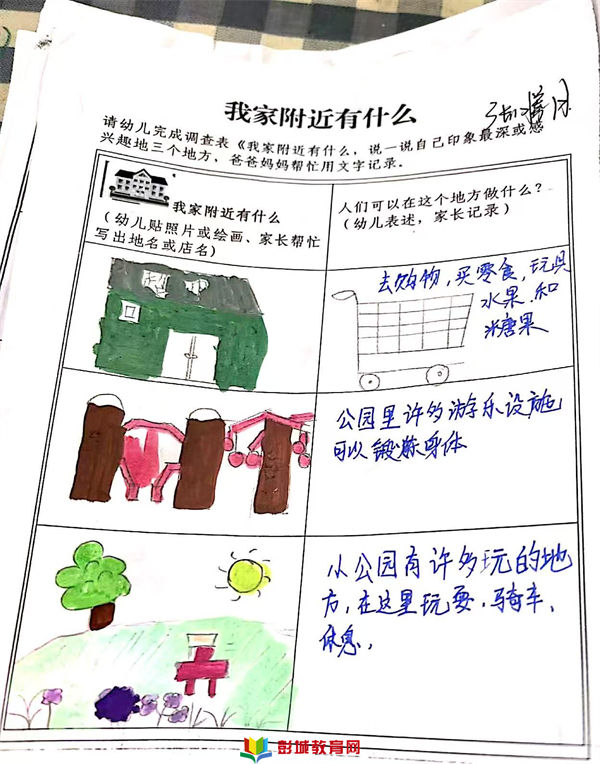 我家附近有什么
请幼儿完成调查表《我家附近有什么，说一说自己印象最深或感
兴趣地三个地方，爸爸妈妈帮忙用文字记录。
我家附近有什么
（幼儿贴照片或绘画、家长帮忙
写出地名或店名）
人们可以在这个地方做什么？
（幼儿表述，家长记录）
去购物，买零食，玩具
水果.和
糖果
公园里许多游乐设施
可以锻炼身体
从公园有许多玩的地
方，在这里玩耍，骑车，
休息，
彭城教育网